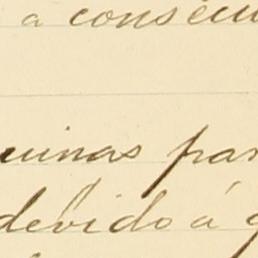 a consecu
uinas par
devido á q